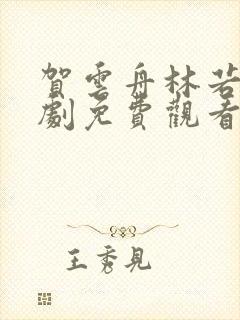 賀雲舟林若
劇免費觀看
王秀見